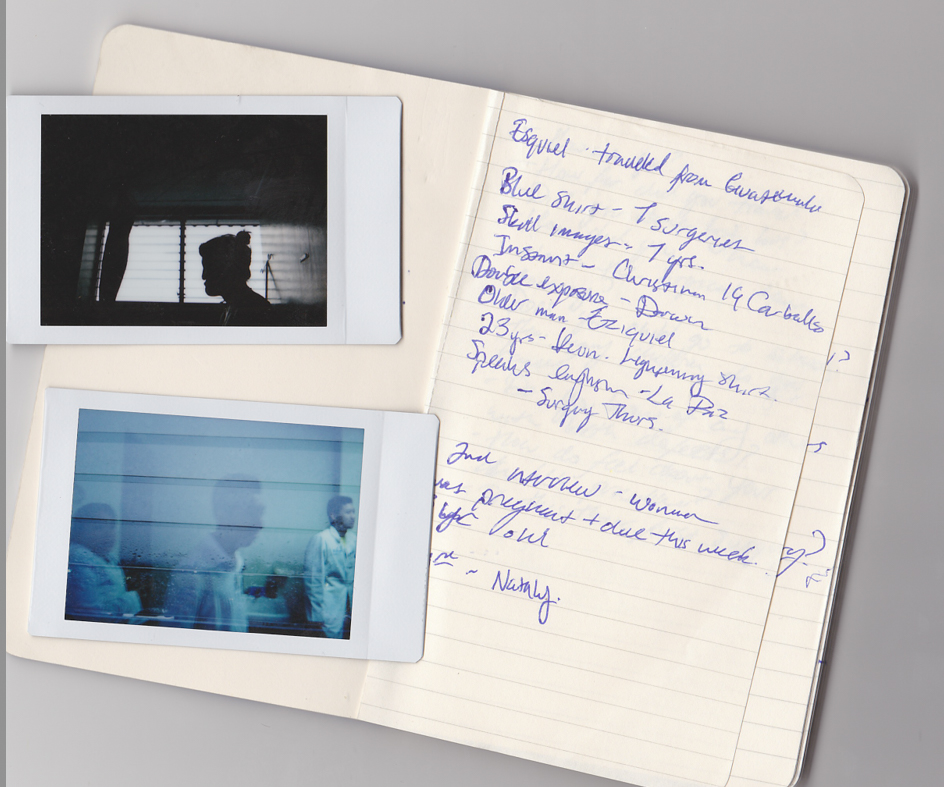 Esquiel · traveled from Guatemala
Blue shirt - 7 surgeries
Skull images - 7 yrs.
- Christian 19 Carballo
Double exposure - Darwin
Older man - Eziquiel
23 yrs - Kevin. Lightening shirt.
Speaks english - La Paz
- Surgery Thurs.
2nd interview - woman
was pregnant + due this week.
- Nataly.